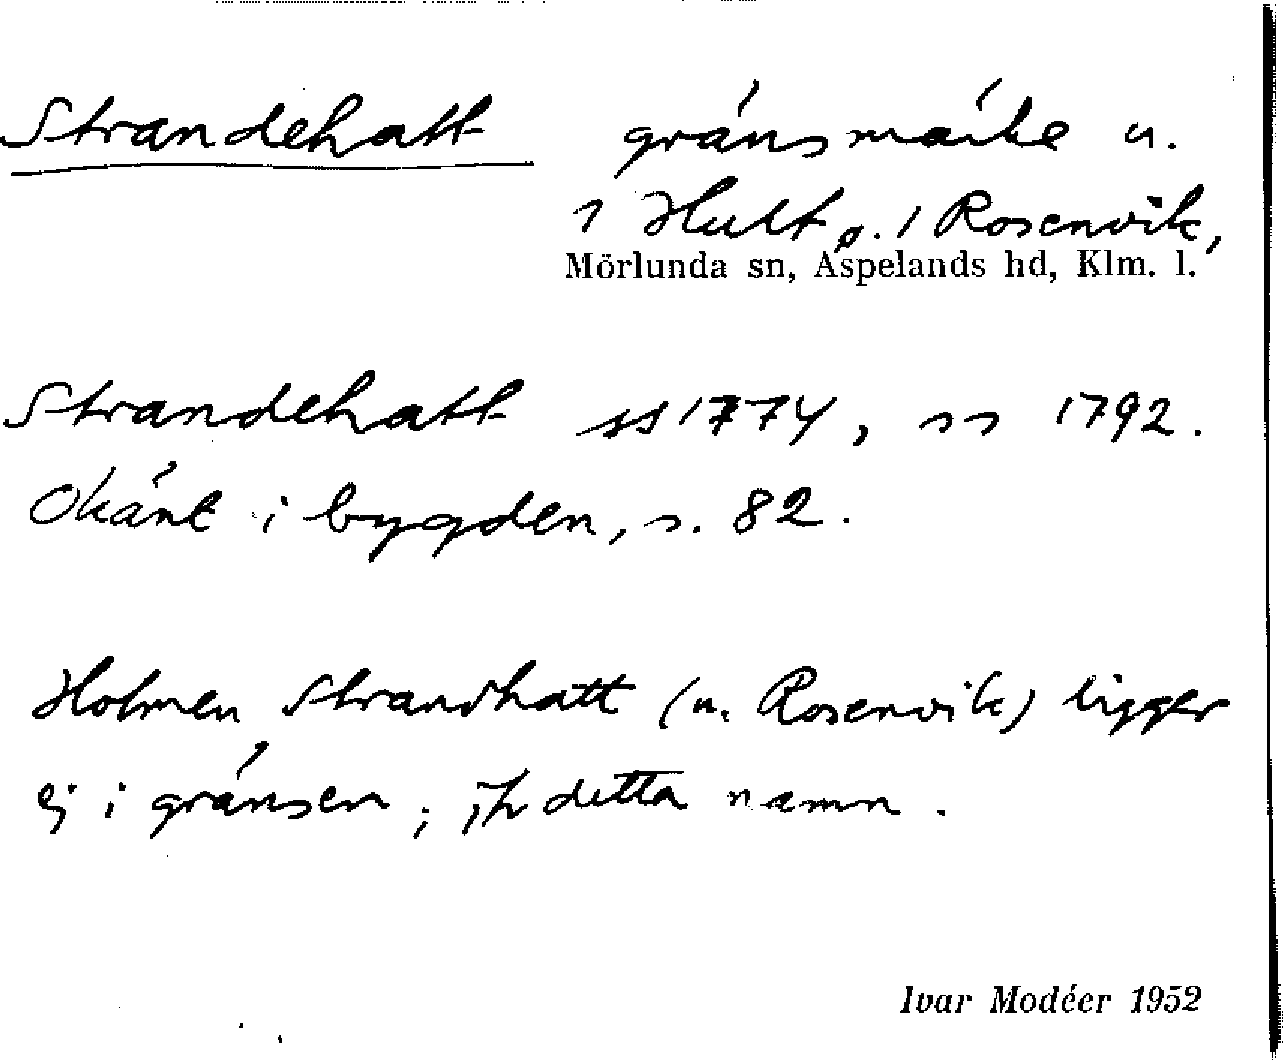 Strandehatt gränsmärke u.
1 Hult o. 1 Rosenvik,
Mörlunda sn, Aspelands hd, Klm. l.
Strandehatt ss 1774, ss 1792.
Okänt i bygden, s. 82.
Holmen Strandhatt (u. Rosenvik) ligger
ej i gränsen; jfr detta namn.
Ivar Modéer 1952